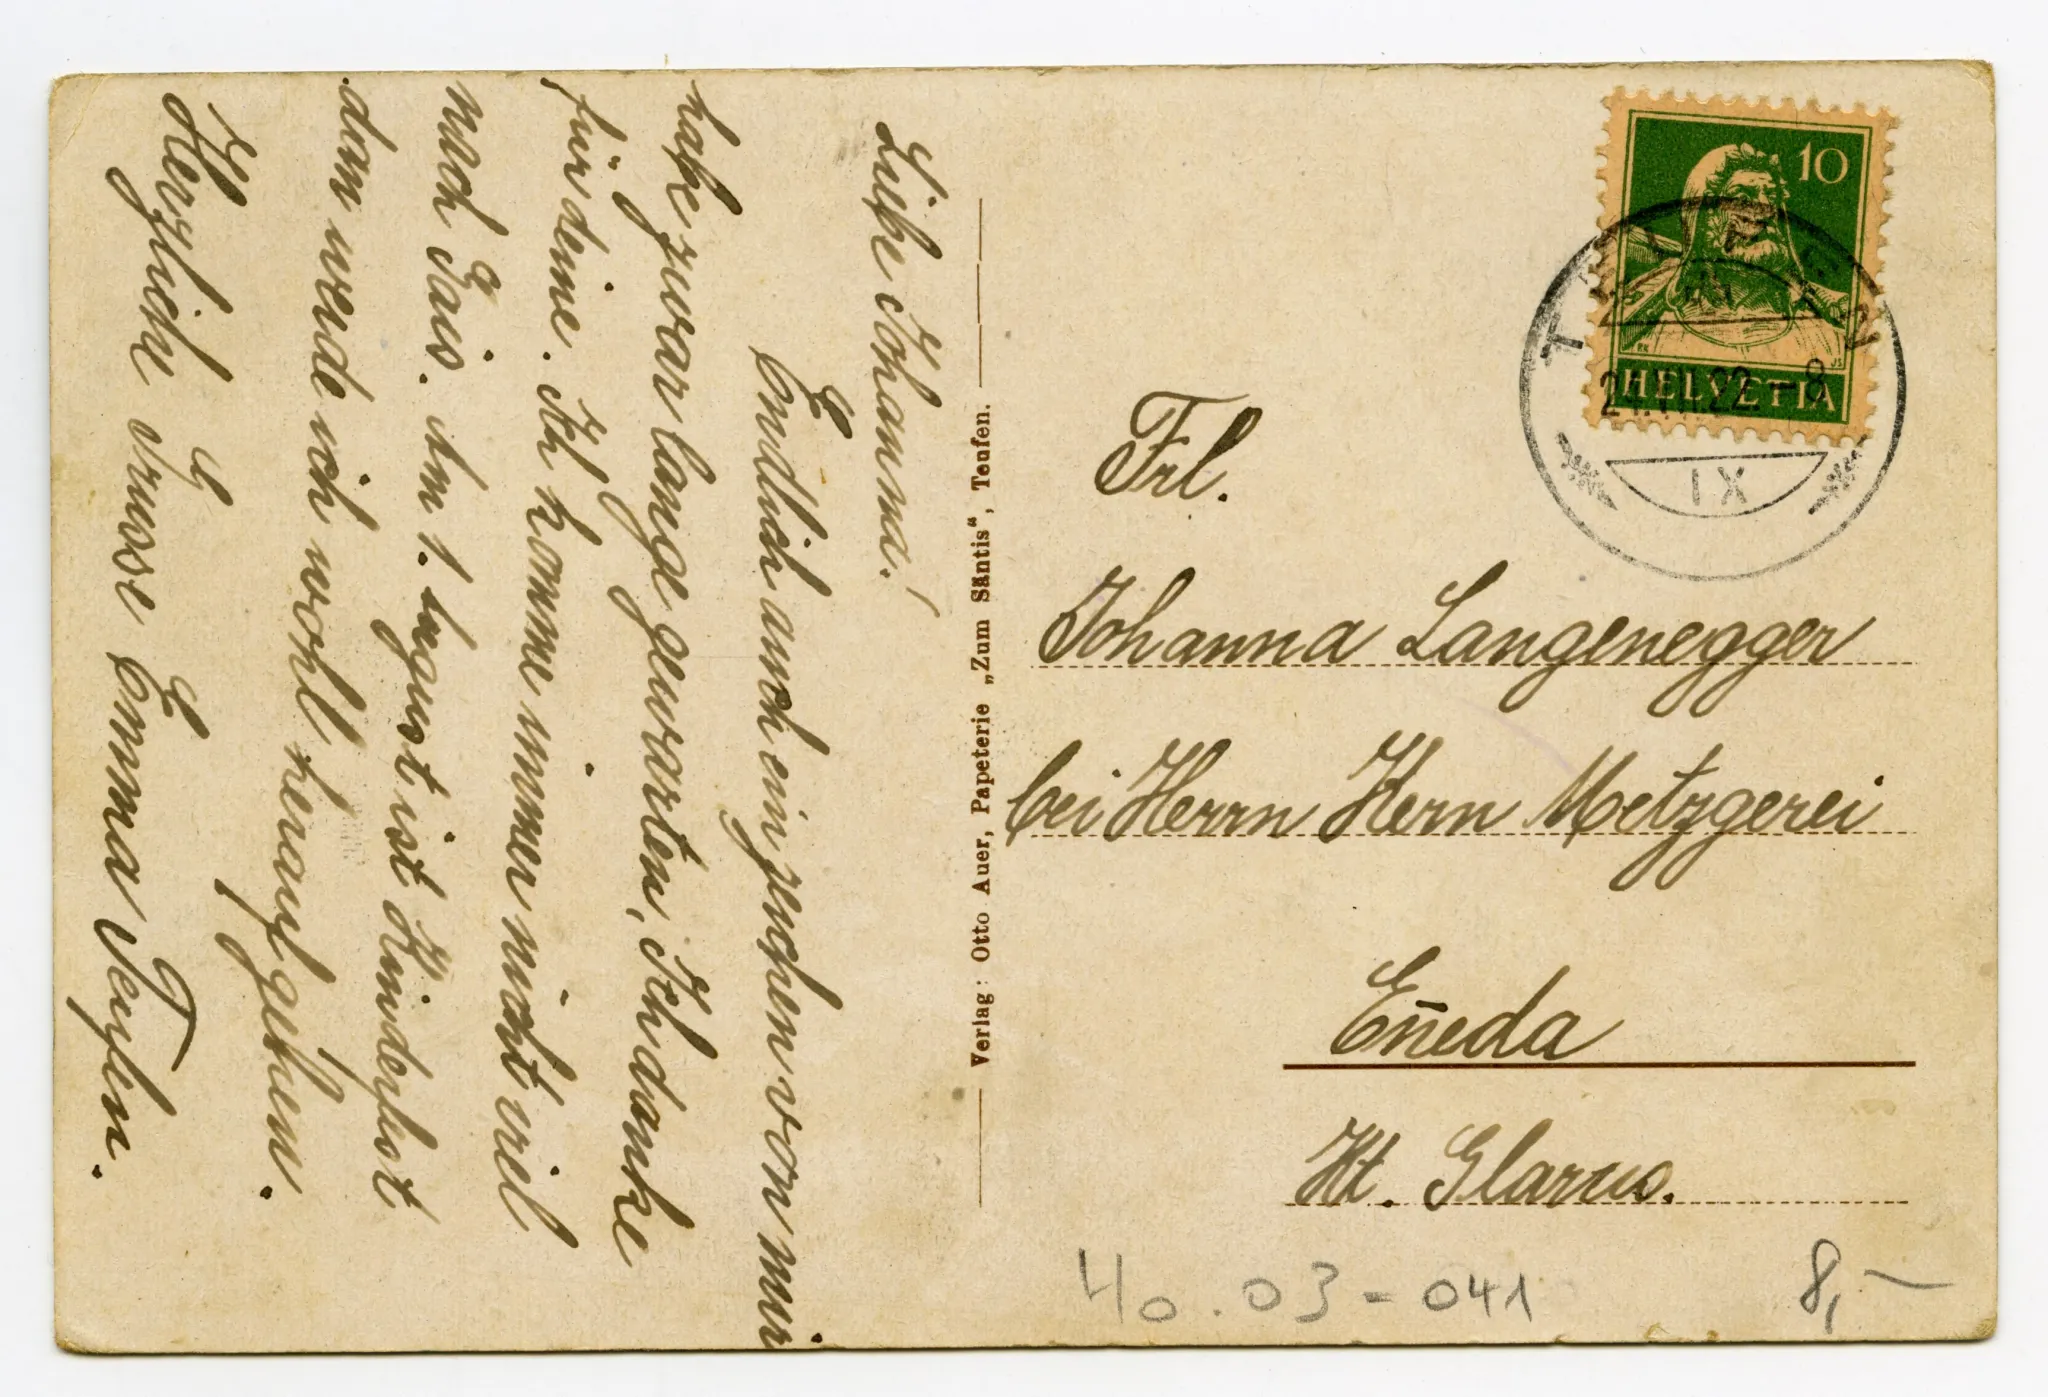 Liebe Johanna!
Endlich auch ein zeichen von mir
habe zwar lange gewarten, Ich danke
für deine. Ich komme immer nicht viel
nach Gais. Am 1. August ist Kinderfest
dan werde ich wohl heraufgehen.
Herzliche Grüsse Emma
Verlag: Otto Auer, Papeterie „Zum Säntis“, Teufen.
10
HELVETIA
IX
Frl.
Johanna Langenegger
bei Herrn Kern Metzgerei
Eñeda
Kt. Glarus.
40.03-041
8,-